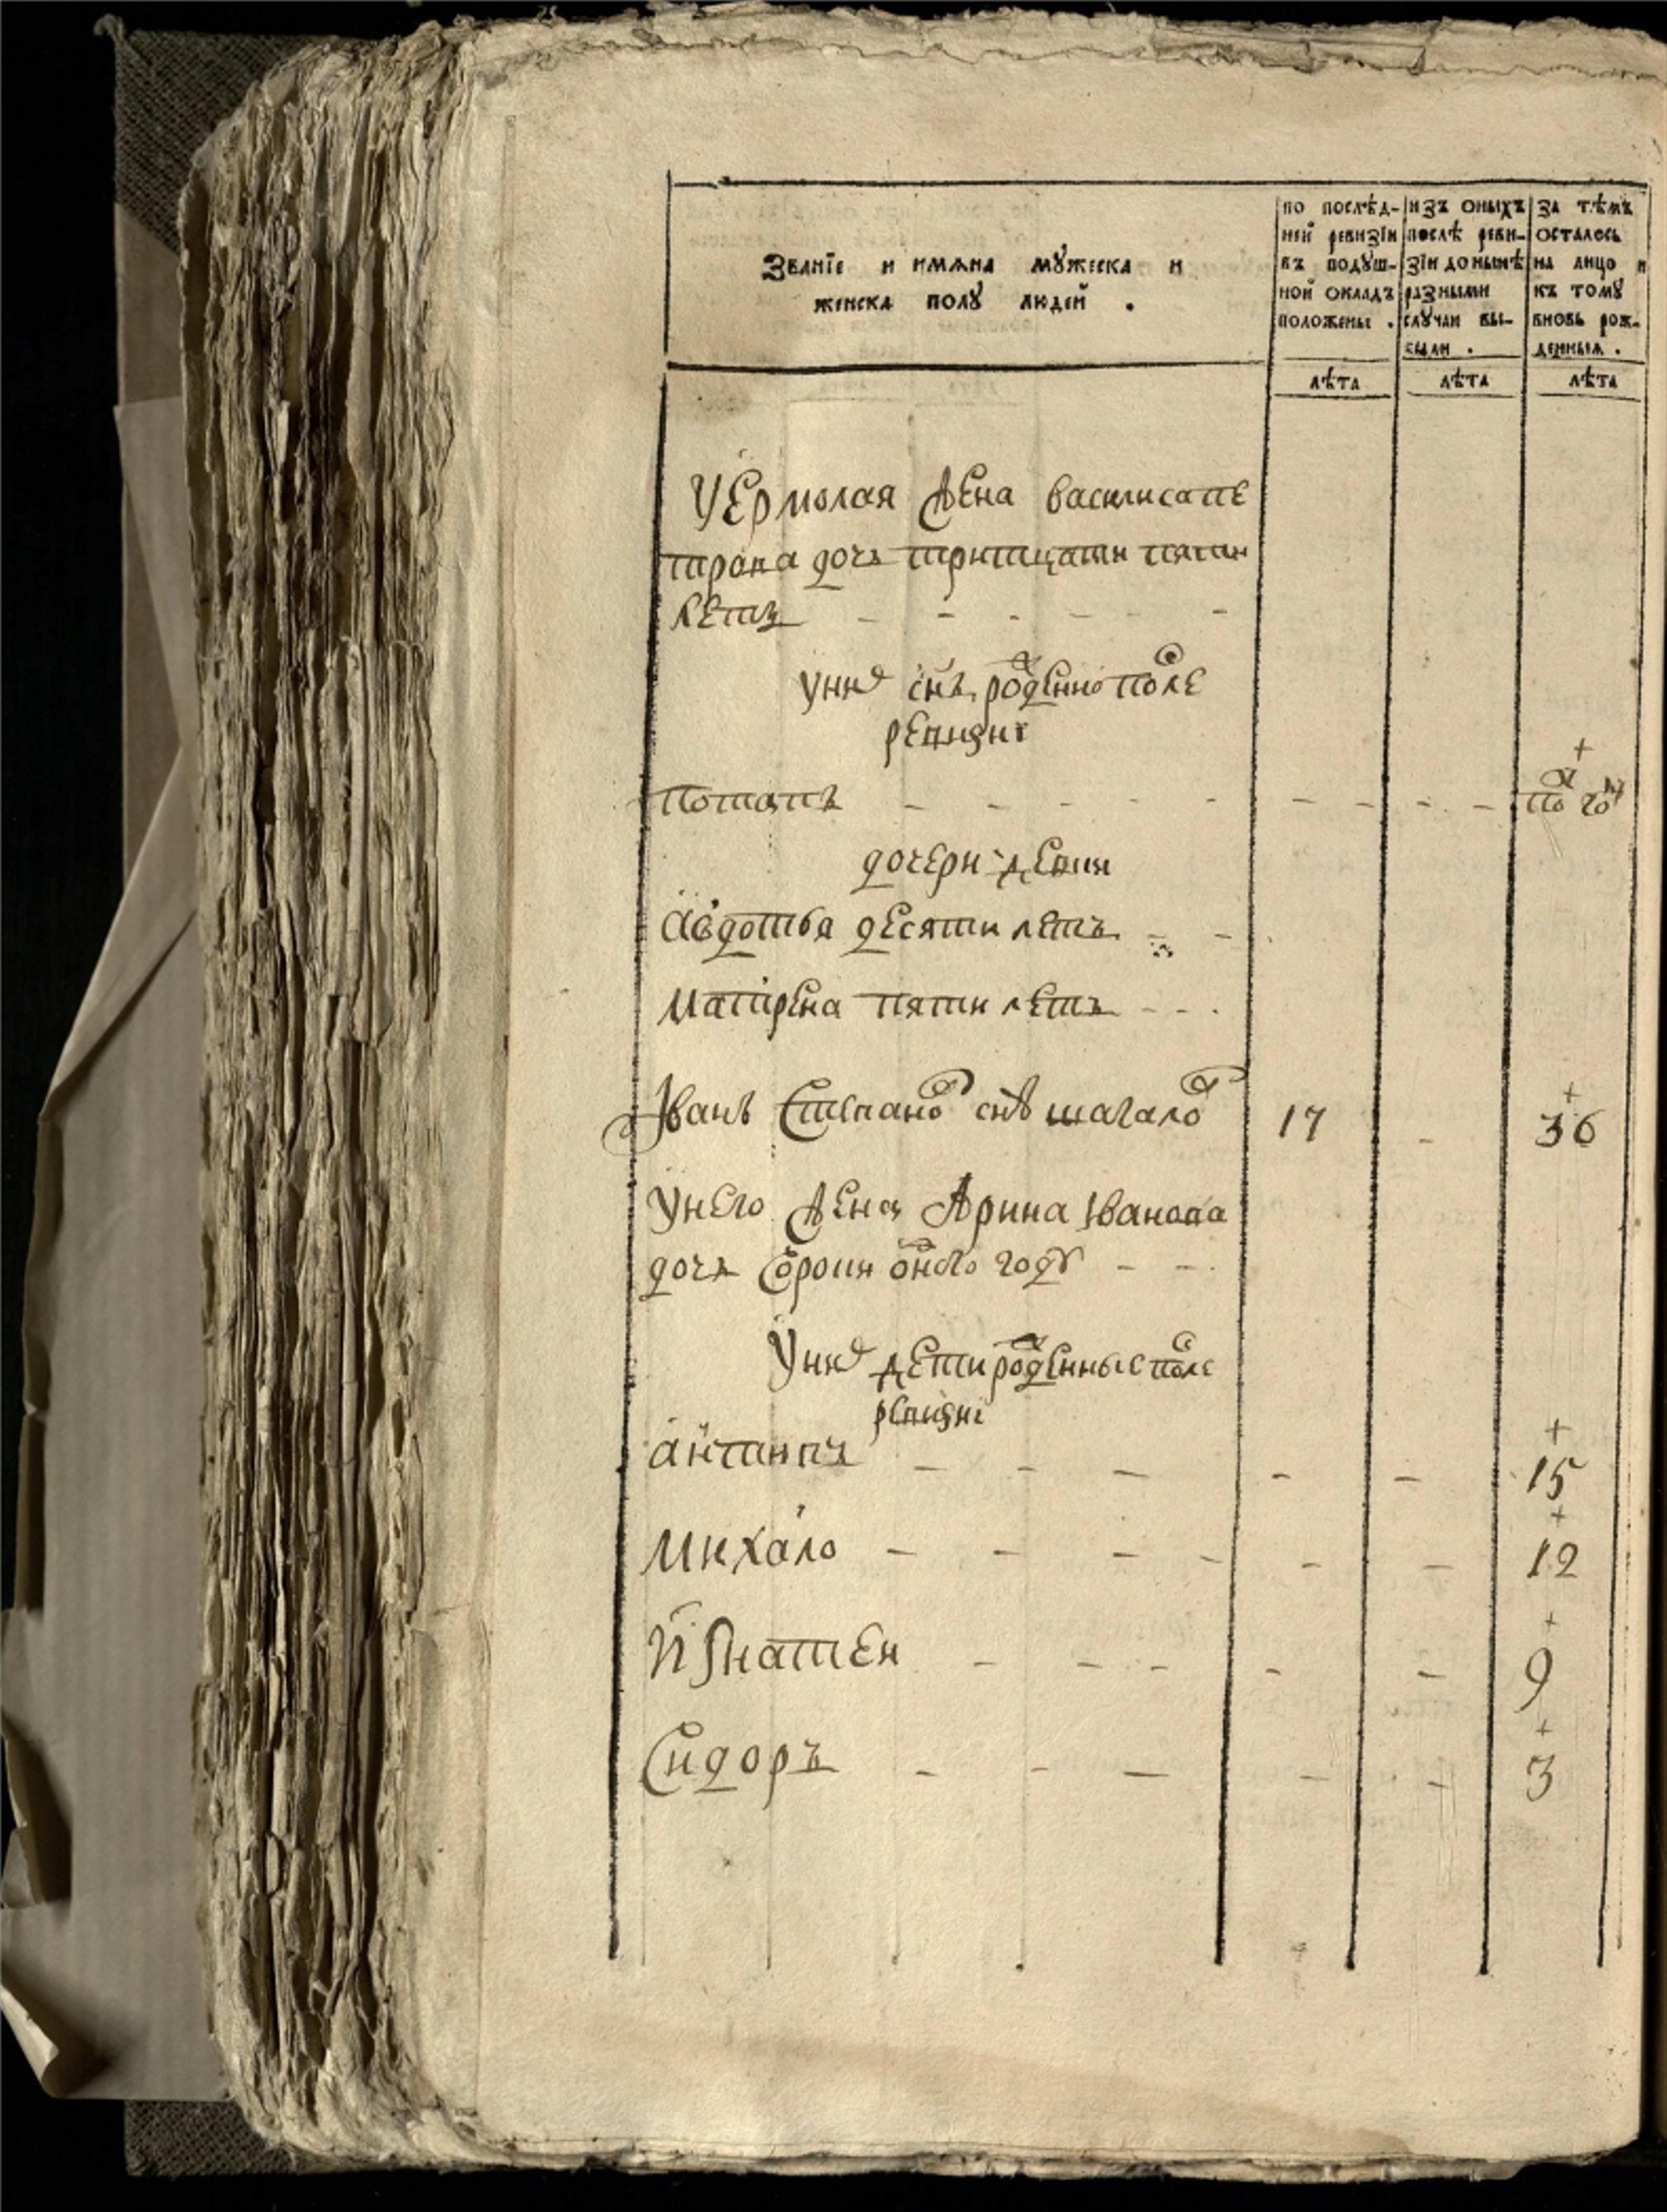 Званїе и имѧна мȣжеска и
женска полȣ людей .
по послѣд-
ней ревизїи
въ подȣш-
ной окладъ
положены .
изъ оныхъ
послѣ реви-
зїи до нынѣ
разными
слȣчаи вы-
были .
за тѣмъ
осталось
на лицо и
къ томȣ
вновь рож-
денныя .
лѣта
лѣта
лѣта
У Ермолая жена василиса пе
трова дочь тритцати пяти
летъ - - - - - -
У них снъ рожденно после
ревизиі
Потапъ - - - - - - - - - полгод
дочери девки
Авдотья десяти летъ - -
Матрена пяти летъ - - -
Іванъ Степанов снъ шагалов 17 - 36
У него жена Арина Іванова
дочь Сорока одного году - -
У них дети рожденные после
ревизиі
антипъ - - - - - 15
Михаило - - - - - - 12
Игнатеи - - - - - 9
Сидоръ - - - - - 3